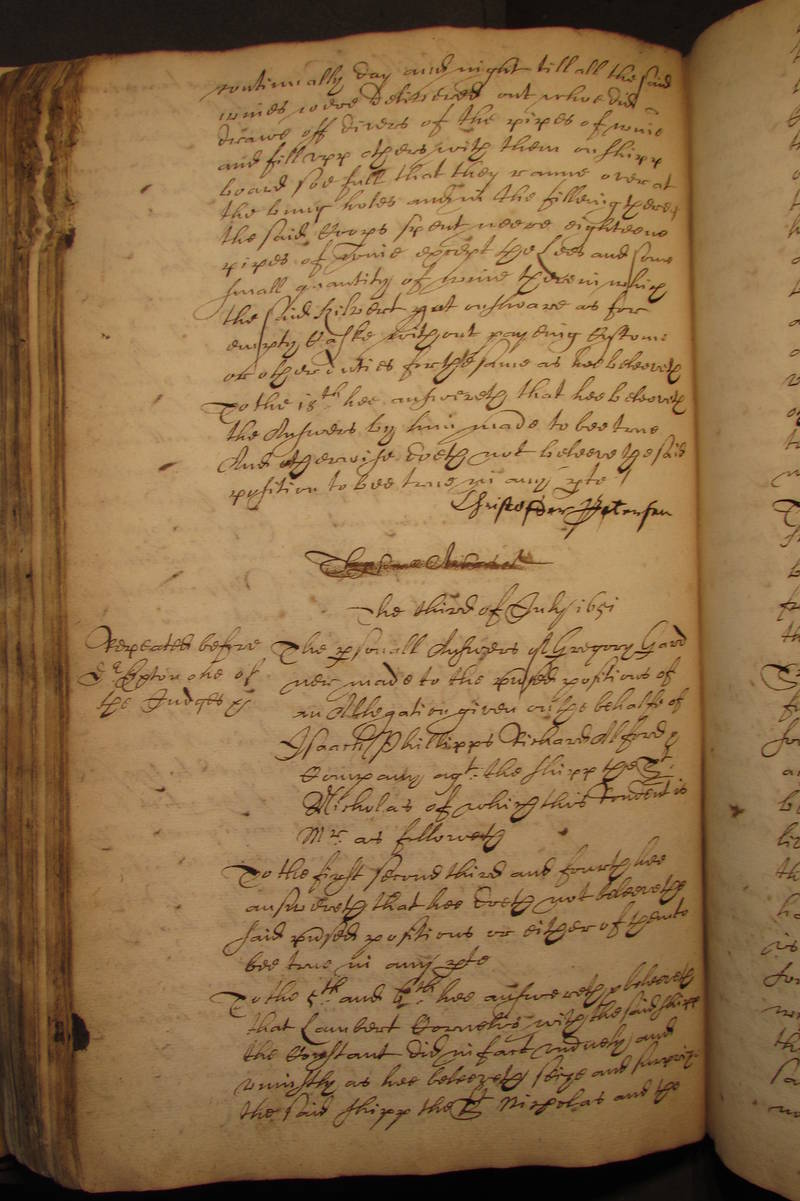 continually day and night till all the said
wines were delivered out whoe did
drawe off divers of the pipes of wine
and fill upp others with them on shipp
board soe full that they ranne over at
the bung holes and in the filleing thereof
the said Corps spent neere eighteene
pipes of wine except the Lees and some
small quantity of wine therein which
the said put on shoare as for
empty Caske without payeing Custome
or other duties for the same as hee beleeveth
To the 18th hee answereth that hee beleeveth
the Answers by him made to bee true
And otherwise doeth not beleeve the said
position to bee true in any pte /
Christoffer Petersen
The third of July 1651
Repeated before
Dr one of
the Judges &
The psonall Answers of Gregory Gard
ner made to the pmised positions of
an Allegation given on the behalfe of
Isaack Phillipps Richard Alford &
Company agt: the shipp the St:
Nicholas of which this rendent is
Mr: as followeth
To the first second third and fourth hee
answereth that hee doeth not beleeve the
said pmised positions or either of them to
bee true in any pte
To the 5th and 6th hee answereth & beleeveth
that Lambert Cornelis with the said shipp
the Constant did in fact unduely and
uniustly as hee beleeveth seize and surprize
the said shipp the St Nicholas and the